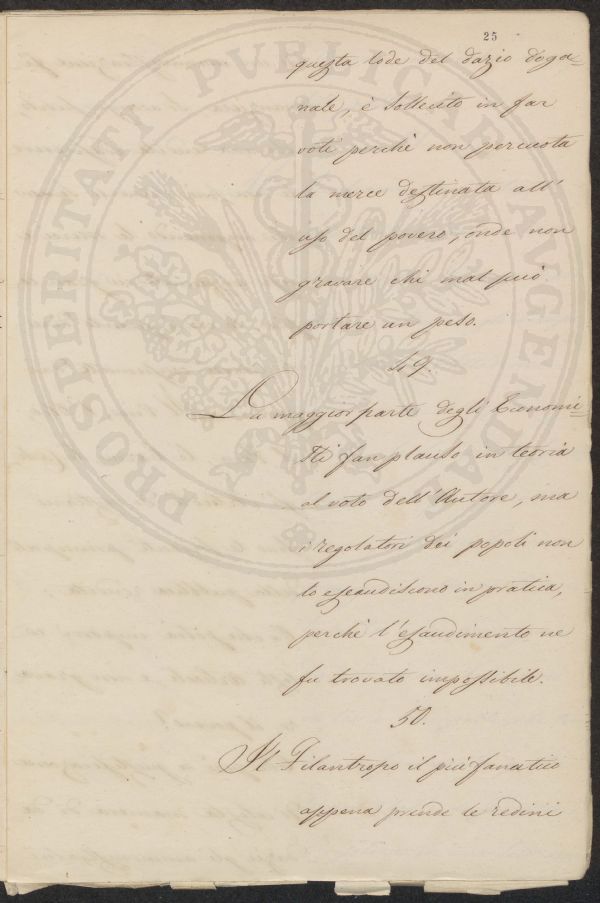 25
questa lode del dazio doga=
nale, è sollecito in far
voti perchè non percuota
la merce destinata all'
uso del povero, onde non
gravare chi mal può
portare un peso.
49.
La maggior parte degli Economi=
sti fan plauso in teoria
al voto dell'Autore, ma
i regolatori dei popoli non
lo esaudiscono in pratica,
perchè l'esaudimento ne
fu trovato impossibile.
50.
Il Filantropo il più fanatico
appena prende le redini
PROSPERITATI PUBLICAE AUGENDAE